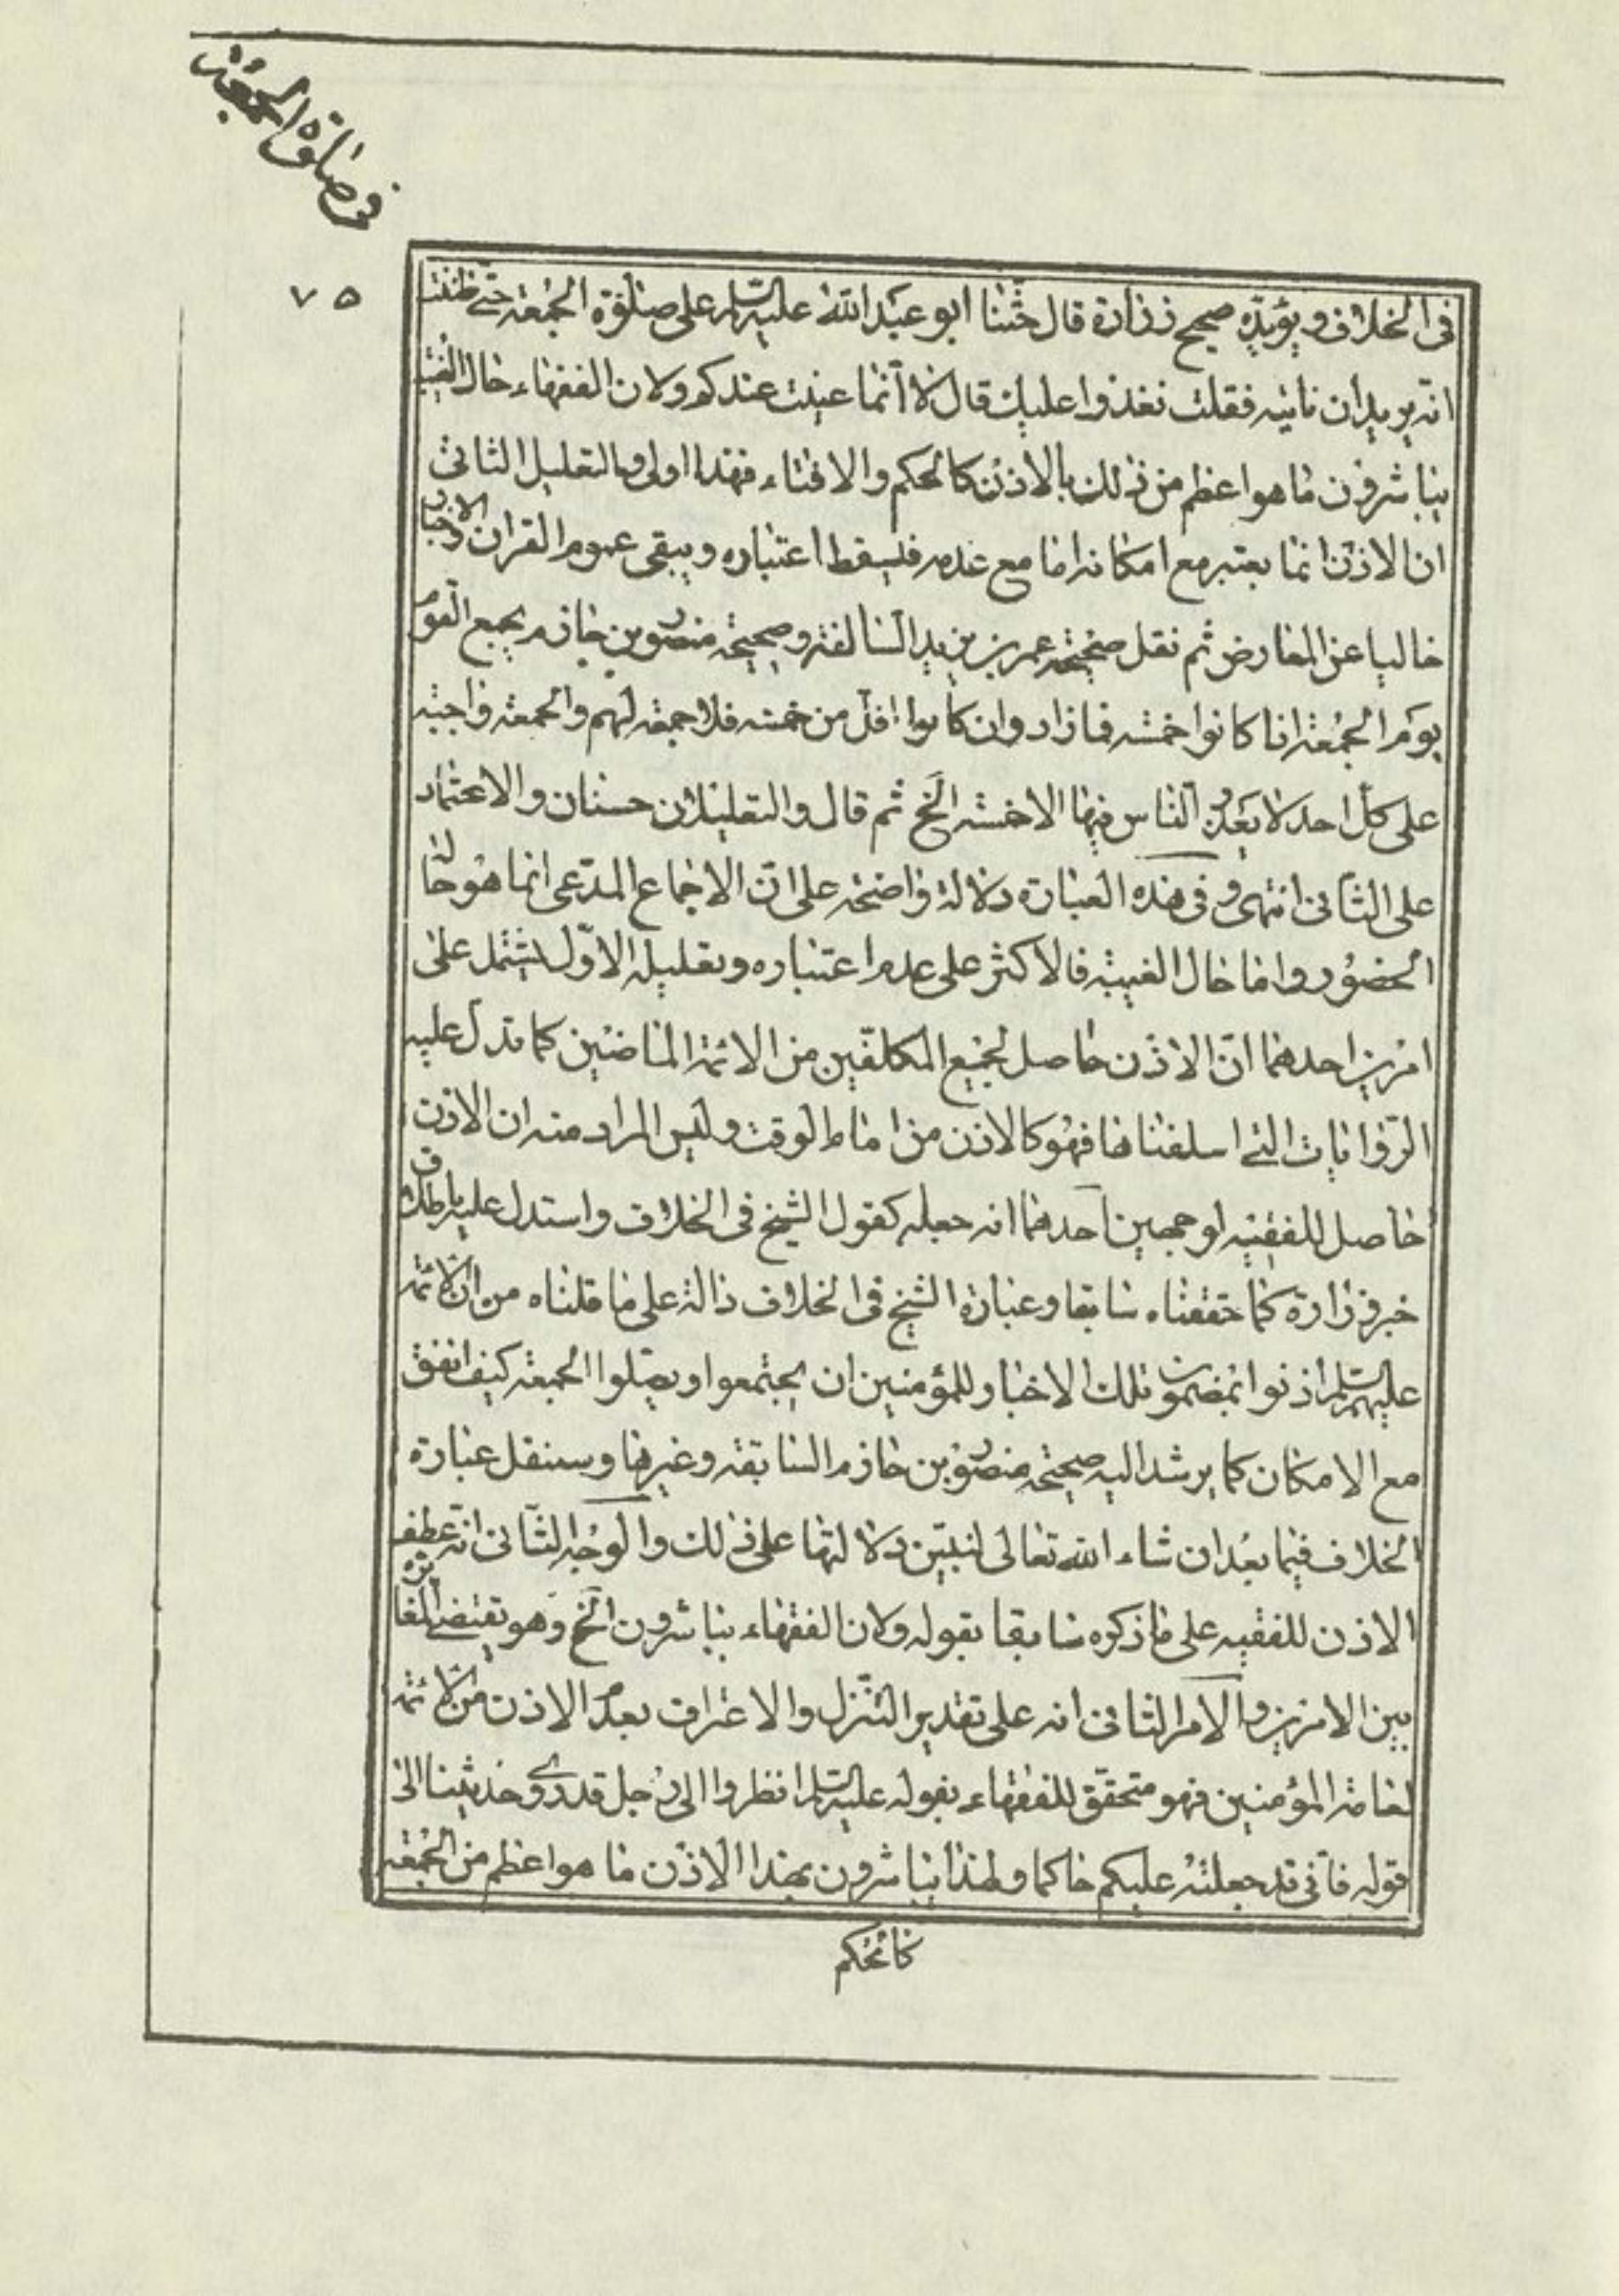 في صلوة الجمعة
٧٥
في الخلاف ويؤيده صحيح زرارة قال حثنا ابو عبد الله عليه السلم على صلوة الجمعة حتى ظننت
انه يريد ان ناتيه فقلت نغدوا عليك قال لا انما عنيت عندكم ولان الفقهاء حال الغيبة
يباشرون ما هو اعظم من ذلك بالاذن كالحكم والافتاء فهذا اولى والتعليل الثاني
ان الاذن انما يعتبر مع امكانه اما مع عدمه فيسقط اعتباره ويبقى عموم القران والاخبار
خاليا عن المعارض ثم نقل صحيحة عمر بن يزيد السالفة وصحيحة منصور بن حازم يجمع القوم
يوم الجمعة اذا كانوا خمسة فما زاد وان كانوا اقل من خمسة فلا جمعة لهم والجمعة واجبة
على كل احد لا يعذر الناس فيها الا خمسة الخ ثم قال والتعليلان حسنان والاعتماد
على الثاني انتهى وفي هذه العبارة دلالة واضحة على ان الاجماع المدعى انما هو حال
الحضور واما حال الغيبة فالاكثر على عدم اعتباره وتعليله الاول يشتمل على
امرين احدهما ان الاذن حاصل لجميع المكلفين من الائمة الماضين كما تدل عليه
الروايات التي اسلفناها فهو كالاذن من امام الوقت وليس المراد منه ان الاذن
حاصل للفقيه لوجهين احدهما انه جعله كقول الشيخ في الخلاف واستدل عليه باطلاق
خبر زرارة كما حققناه سابقا وعبارة الشيخ في الخلاف دالة على ما قلناه من ان الائمة
عليهم السلم اذنوا بمضمون تلك الاخبار للمؤمنين ان يجتمعوا ويصلوا الجمعة كيف اتفق
مع الامكان كما يرشد اليه صحيحة منصور بن حازم السابقة وغيرها وسننقل عبارة
الخلاف فيما بعد ان شاء الله تعالى لنبين دلالتها على ذلك والوجه الثاني انه عطف
الاذن للفقيه على ما ذكره سابقا بقوله ولان الفقهاء يباشرون الخ وهو يقتضي المغايرة
بين الامرين والامر الثاني انه على تقدير التنزل والاعتراف بعدم الاذن من الائمة
لعامة المؤمنين فهو متحقق للفقهاء بقوله عليه السلم انظروا الى رجل قد روى حديثنا الى
قوله فاني قد جعلته عليكم حاكما ولهذا يباشرون بهذا الاذن ما هو اعظم من الجمعة
كالحكم